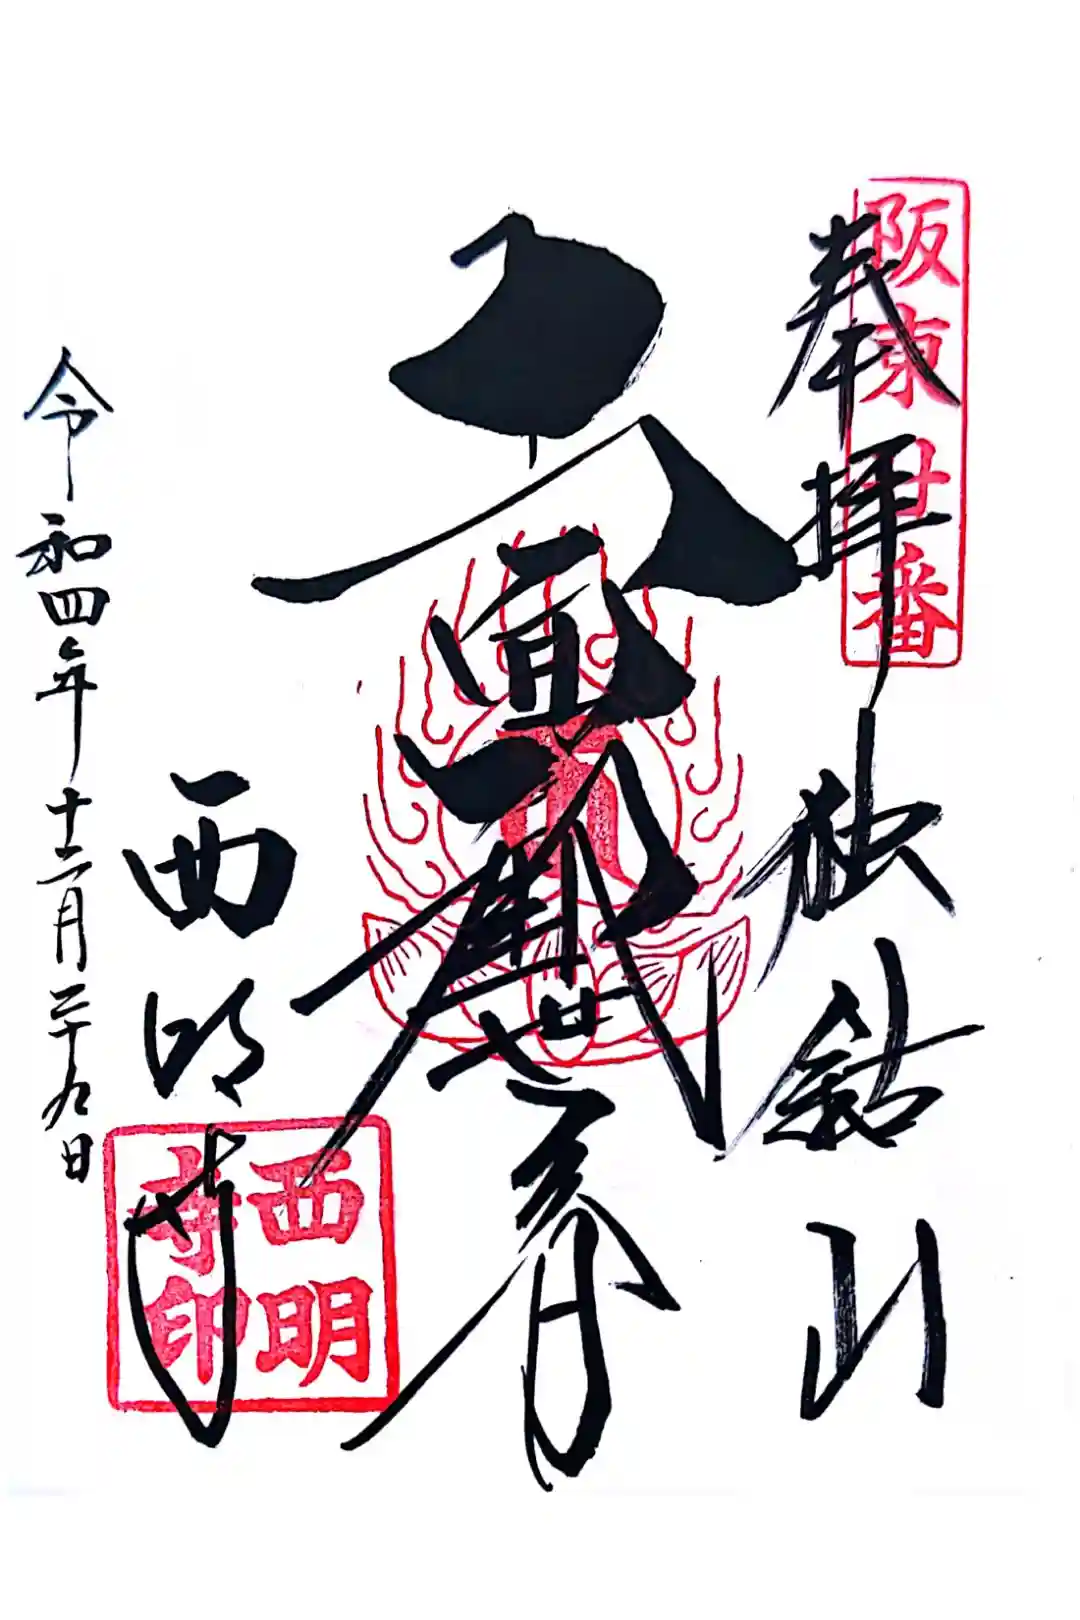 阪東廿番
奉拝 独鈷山
面觀世音
西明寺
西明寺印
令和四年十二月二十九日